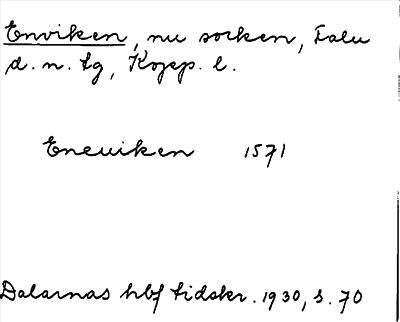 Enviken, nu socken, Falu
d. n. tg, Kopp. l.
Eneuiken 1571
Dalarnas hbf tidskr. 1930, s. 70